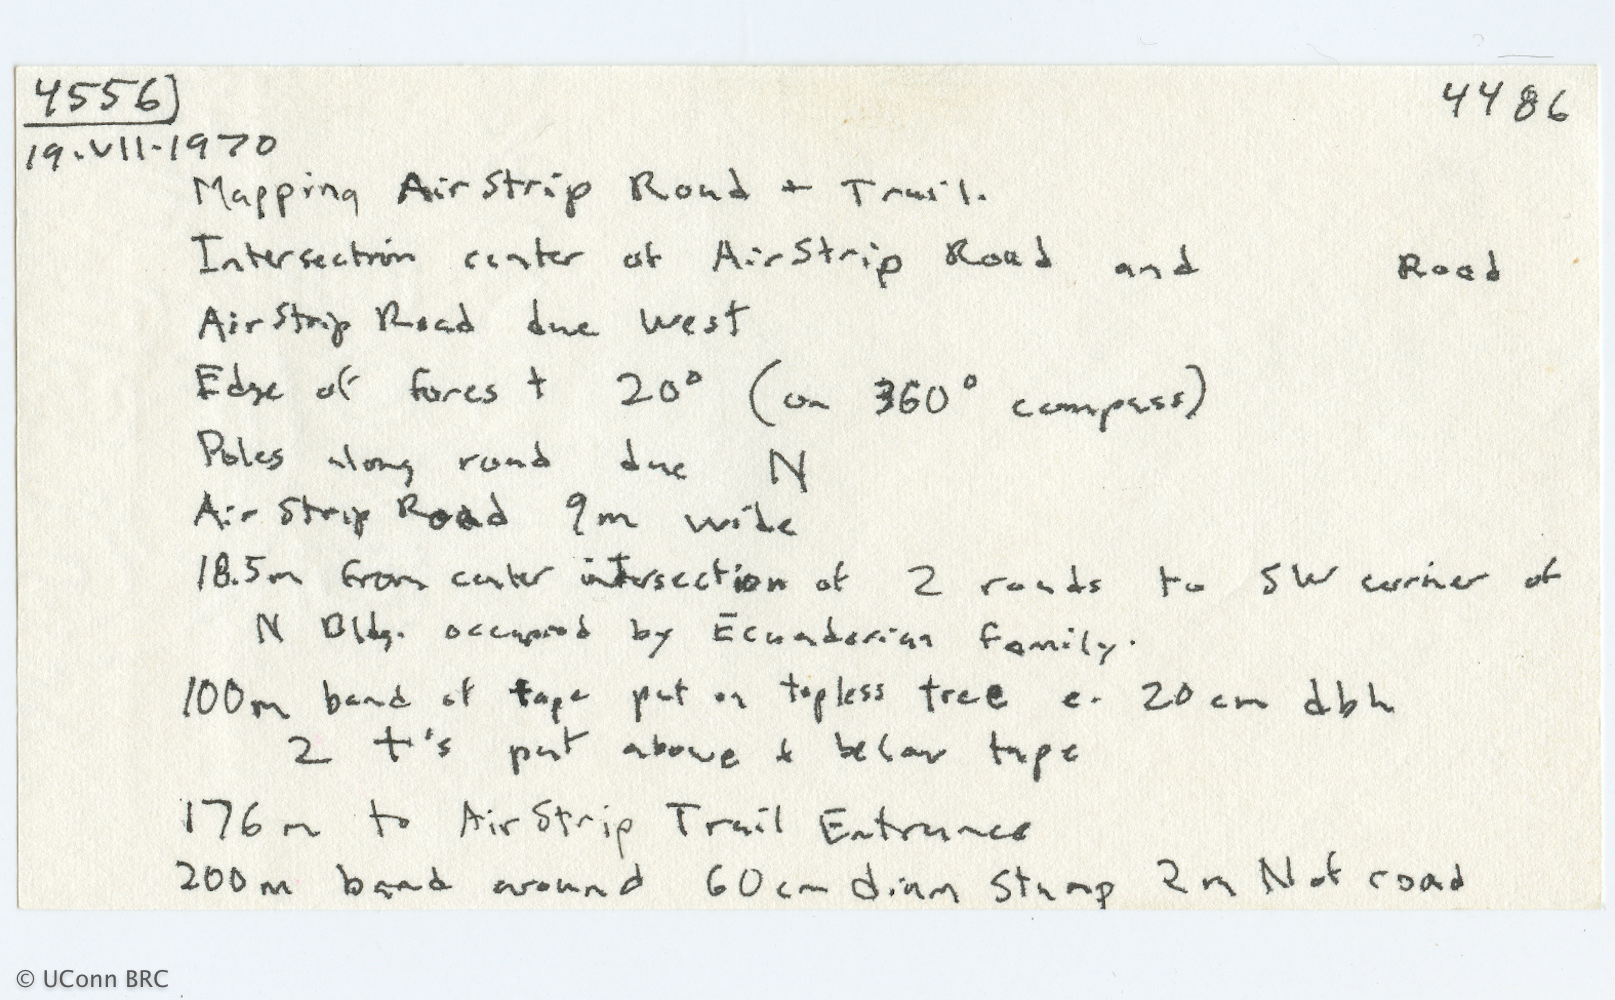 4556] 4486
19.VII.1970
Mapping AirStrip Road + Trail.
Intersection center of AirStrip Road and Road
AirStrip Road due West
Edge of forest 20° (on 360° compass)
Poles along road due N
Air Strip Road 9m wide
18.5m from center intersection of 2 roads to SW corner of
N Bldg. occupied by Ecuadorian Family.
100m band of tape put on topless tree c. 20cm dbh
2 t's put above & below tape
176m to AirStrip Trail Entrance
200m band around 60cm diam Stump 2m N of road
© UConn BRC